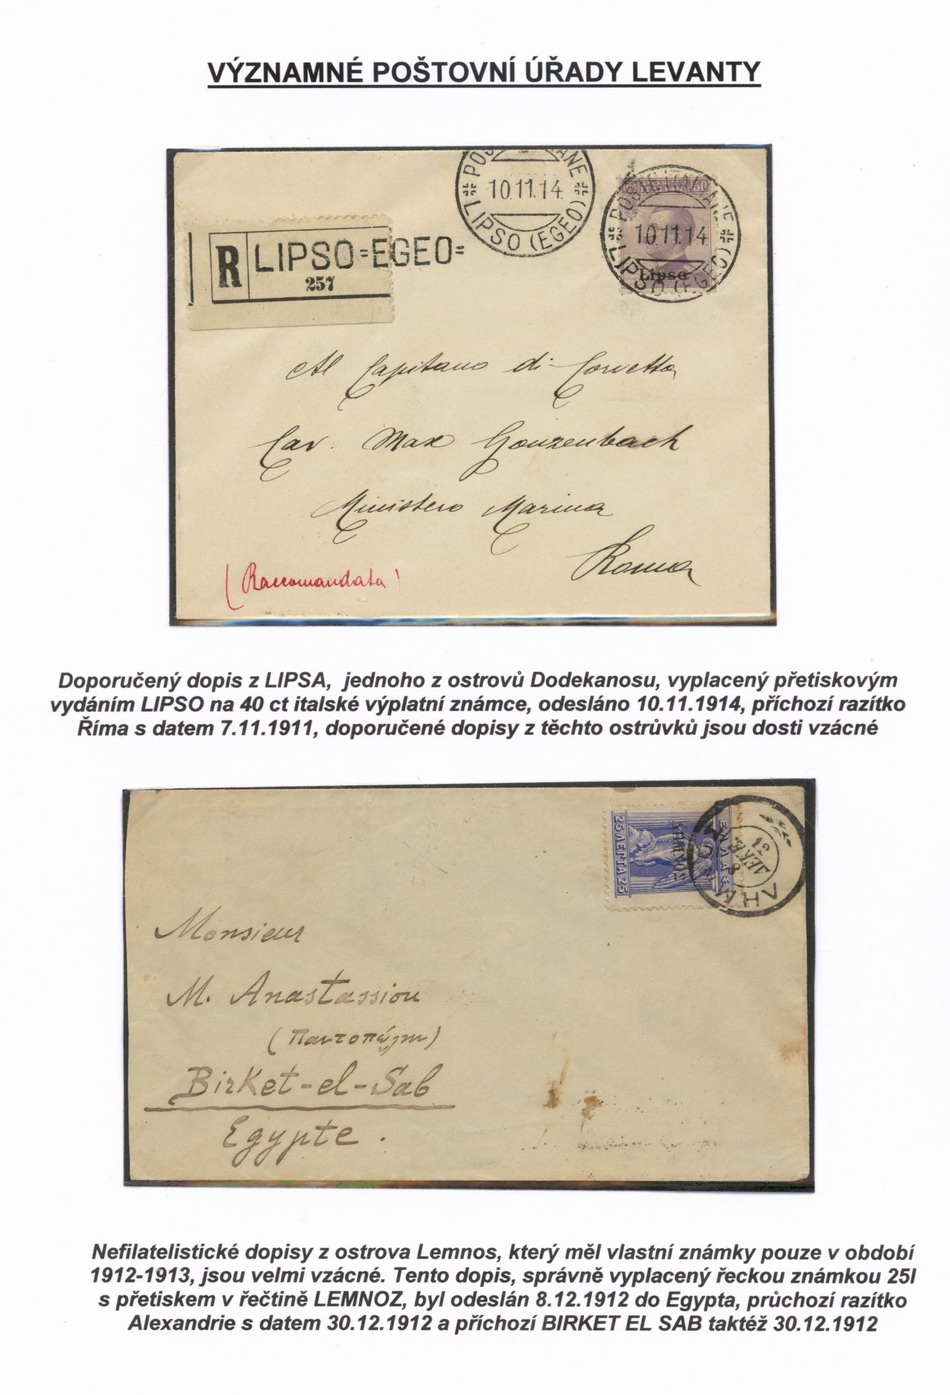 VÝZNAMNÉ POŠTOVNÍ ÚŘADY LEVANTY
POS ANE
10.11.14
LIPSO (EGEO)
POSTE ITALIANE
10.11.14
LIPSO (EGEO)
Lipso
R LIPSO=EGEO=
257
Al Capitano di Corvetta
Cav. Max Gonzenbach
Ministero Marina
Roma
(Raccomandata)
Doporučený dopis z LIPSA, jednoho z ostrovů Dodekanosu, vyplacený přetiskovým
vydáním LIPSO na 40 ct italské výplatní známce, odesláno 10.11.1914, příchozí razítko
Říma s datem 7.11.1911, doporučené dopisy z těchto ostrůvků jsou dosti vzácné
25 ΛΕΠΤΑ 25
ΕΛΛΑΣ
ΛΗΜΝΟΣ
ΛΗΜΝΟΣ
8 ΔΕΚΕ 12
Monsieur
M. Anastassiou
(Παντοπώλην)
Birket-el-Sab
Egypte.
Nefilatelistické dopisy z ostrova Lemnos, který měl vlastní známky pouze v období
1912-1913, jsou velmi vzácné. Tento dopis, správně vyplacený řeckou známkou 25l
s přetiskem v řečtině LEMNOZ, byl odeslán 8.12.1912 do Egypta, průchozí razítko
Alexandrie s datem 30.12.1912 a příchozí BIRKET EL SAB taktéž 30.12.1912